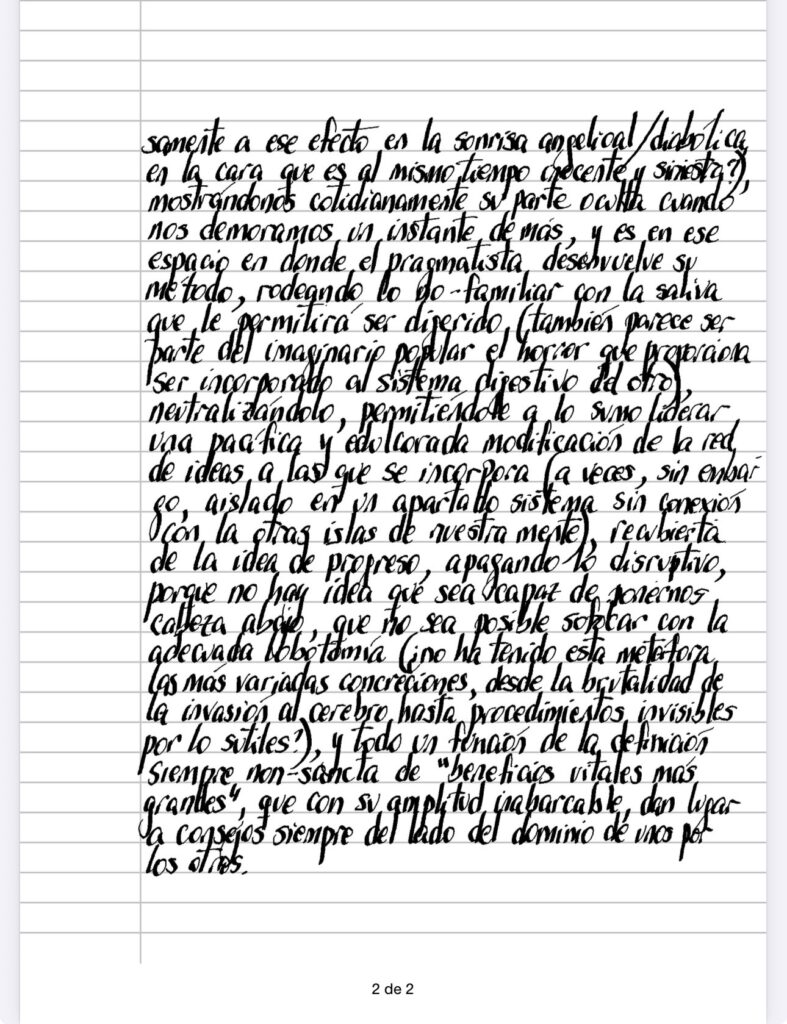 samente a ese efecto en la sonrisa angelical/diabólica,
en la cara que es al mismo tiempo inocente y siniestra?),
mostrándonos cotidianamente su parte oculta cuando
nos demoramos un instante de más, y es en ese
espacio en donde el pragmatista desenvuelve su
método, rodeando lo no-familiar con la saliva
que le permitirá ser digerido (también parece ser
parte del imaginario popular el horror que proporciona
ser incorporado al sistema digestivo del otro),
neutralizándolo, permitiéndole a lo sumo liderar
una pacífica y edulcorada modificación de la red
de ideas a las que se incorpora (a veces, sin embar
go, aislado en un apartado sistema sin conexión
con la otras islas de nuestra mente), recubierta
de la idea de progreso, apagando lo disruptivo,
porque no hay idea que sea capaz de ponernos
cabeza abajo, que no sea posible sofocar con la
adecuada lobotomía (¿no ha tenido esta metáfora
las más variadas concreciones, desde la brutalidad de
la invasión al cerebro hasta procedimientos invisibles
por lo sutiles?), y todo un función de la definición
siempre non-sancta de "beneficios vitales más
grandes", que con su amplitud inabarcable, dan lugar
a consejos siempre del lado del dominio de unos por
los otros.
2 de 2